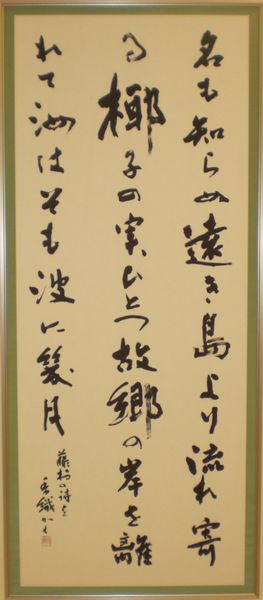 名も知らぬ遠き島より流れ寄
る椰子の実ひとつ故郷の岸を離
れて汝はそも波に幾月
藤村の詩を
かく